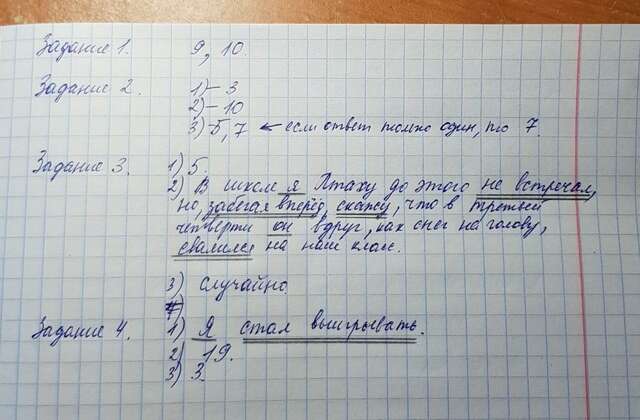 Задание 1. 9, 10.
Задание 2. 1) – 3
2) – 10
3) – 5, 7 ← если ответ только один, то 7.
Задание 3. 1) 5.
2) В школе я Птаху до этого не встречал,
но, забегая вперёд, скажу, что в третьей
четверти он вдруг, как снег на голову,
свалился на наш класс.
3) случайно
Задание 4. 1) Я стал выигрывать.
2) 19.
3) 3.